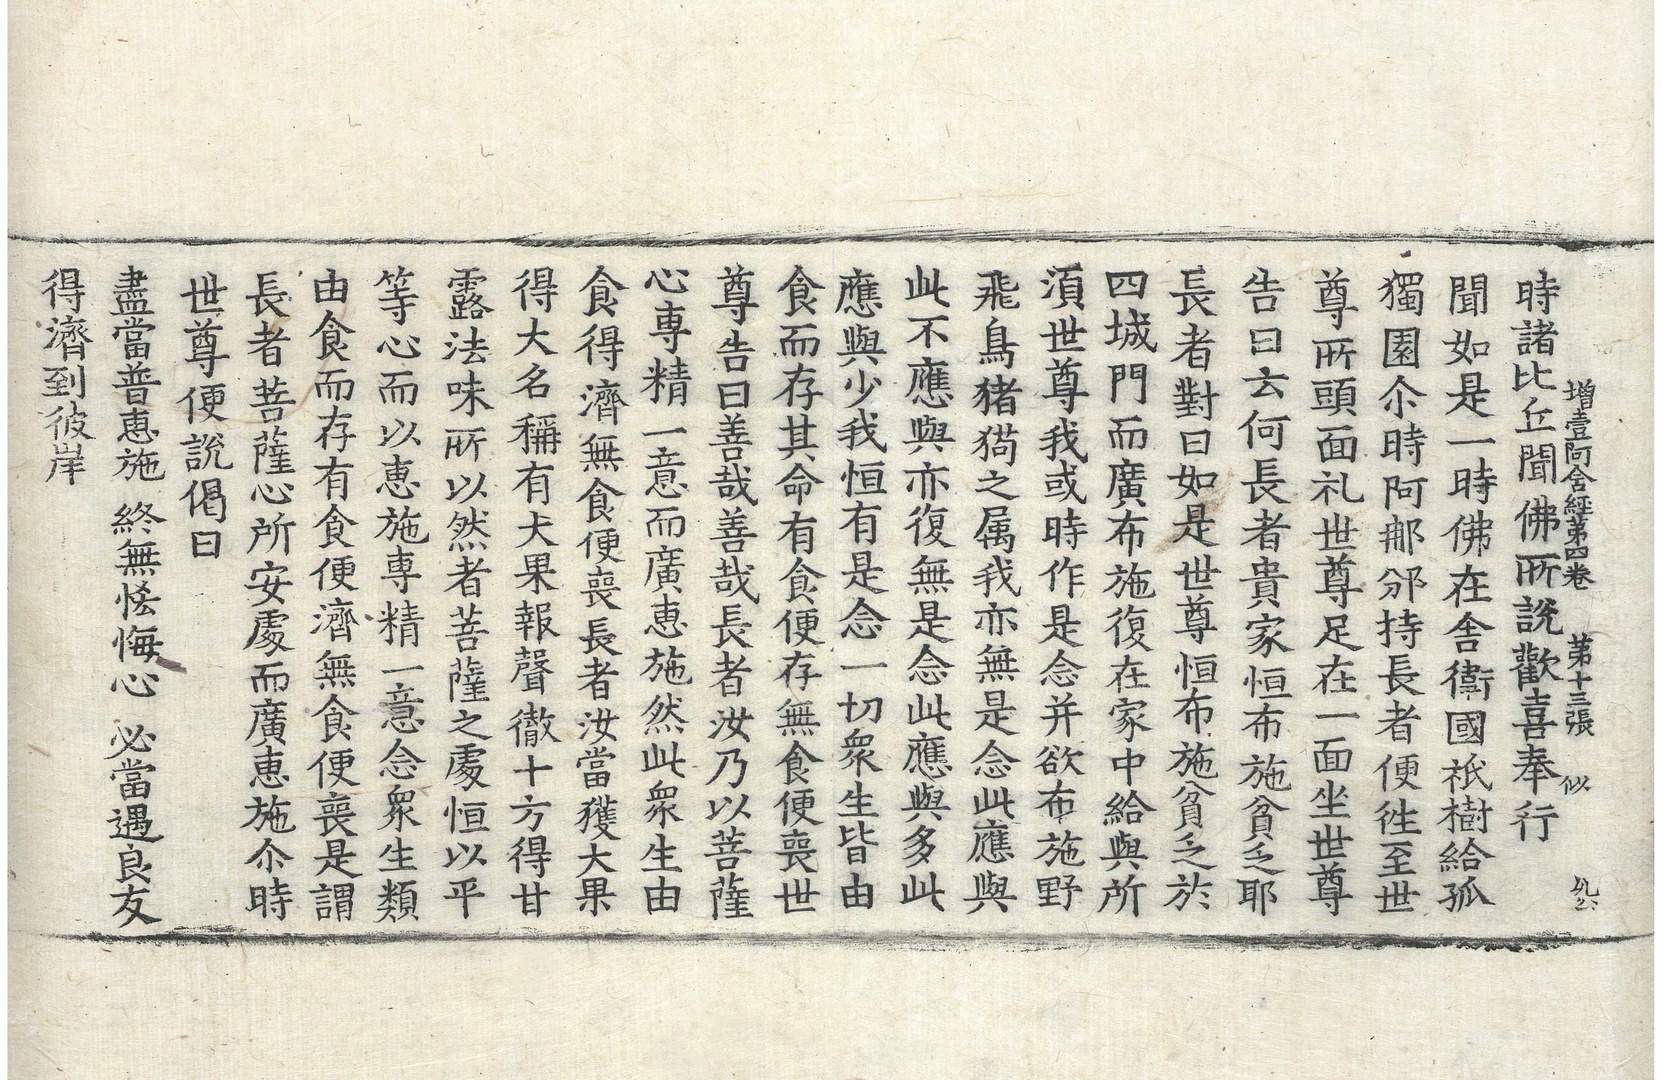 增壹阿含經第四卷 第十三張 似
時諸比丘聞佛所說歡喜奉行
聞如是一時佛在舍衛國祇樹給孤
獨園尒時阿那邠持長者便徃至世
尊所頭面礼世尊足在一面坐世尊
告曰云何長者貴家恒布施貧乏耶
長者對曰如是世尊恒布施貧乏於
四城門而廣布施復在家中給與所
須世尊我或時作是念并欲布施野
飛鳥猪猫之属我亦無是念此應與
此不應與亦復無是念此應與多此
應與少我恒有是念一切衆生皆由
食而存其命有食便存無食便喪世
尊告曰善哉善哉長者汝乃以菩薩
心專精一意而廣惠施然此衆生由
食得濟無食便喪長者汝當獲大果
得大名稱有大果報聲徹十方得甘
露法味所以然者菩薩之處恒以平
等心而以惠施專精一意念衆生類
由食而存有食便濟無食便喪是謂
長者菩薩心所安處而廣惠施尒時
世尊便說偈曰
盡當普惠施 終無恡悔心 必當遇良友
得濟到彼岸